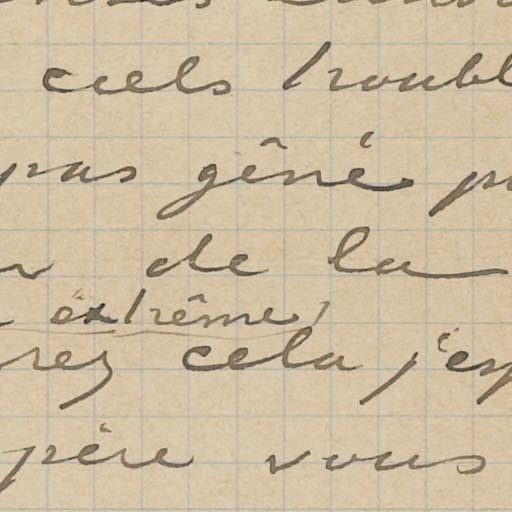 ciels troubl
pas gêné
de la
extrême,
cela j'esp
père vous